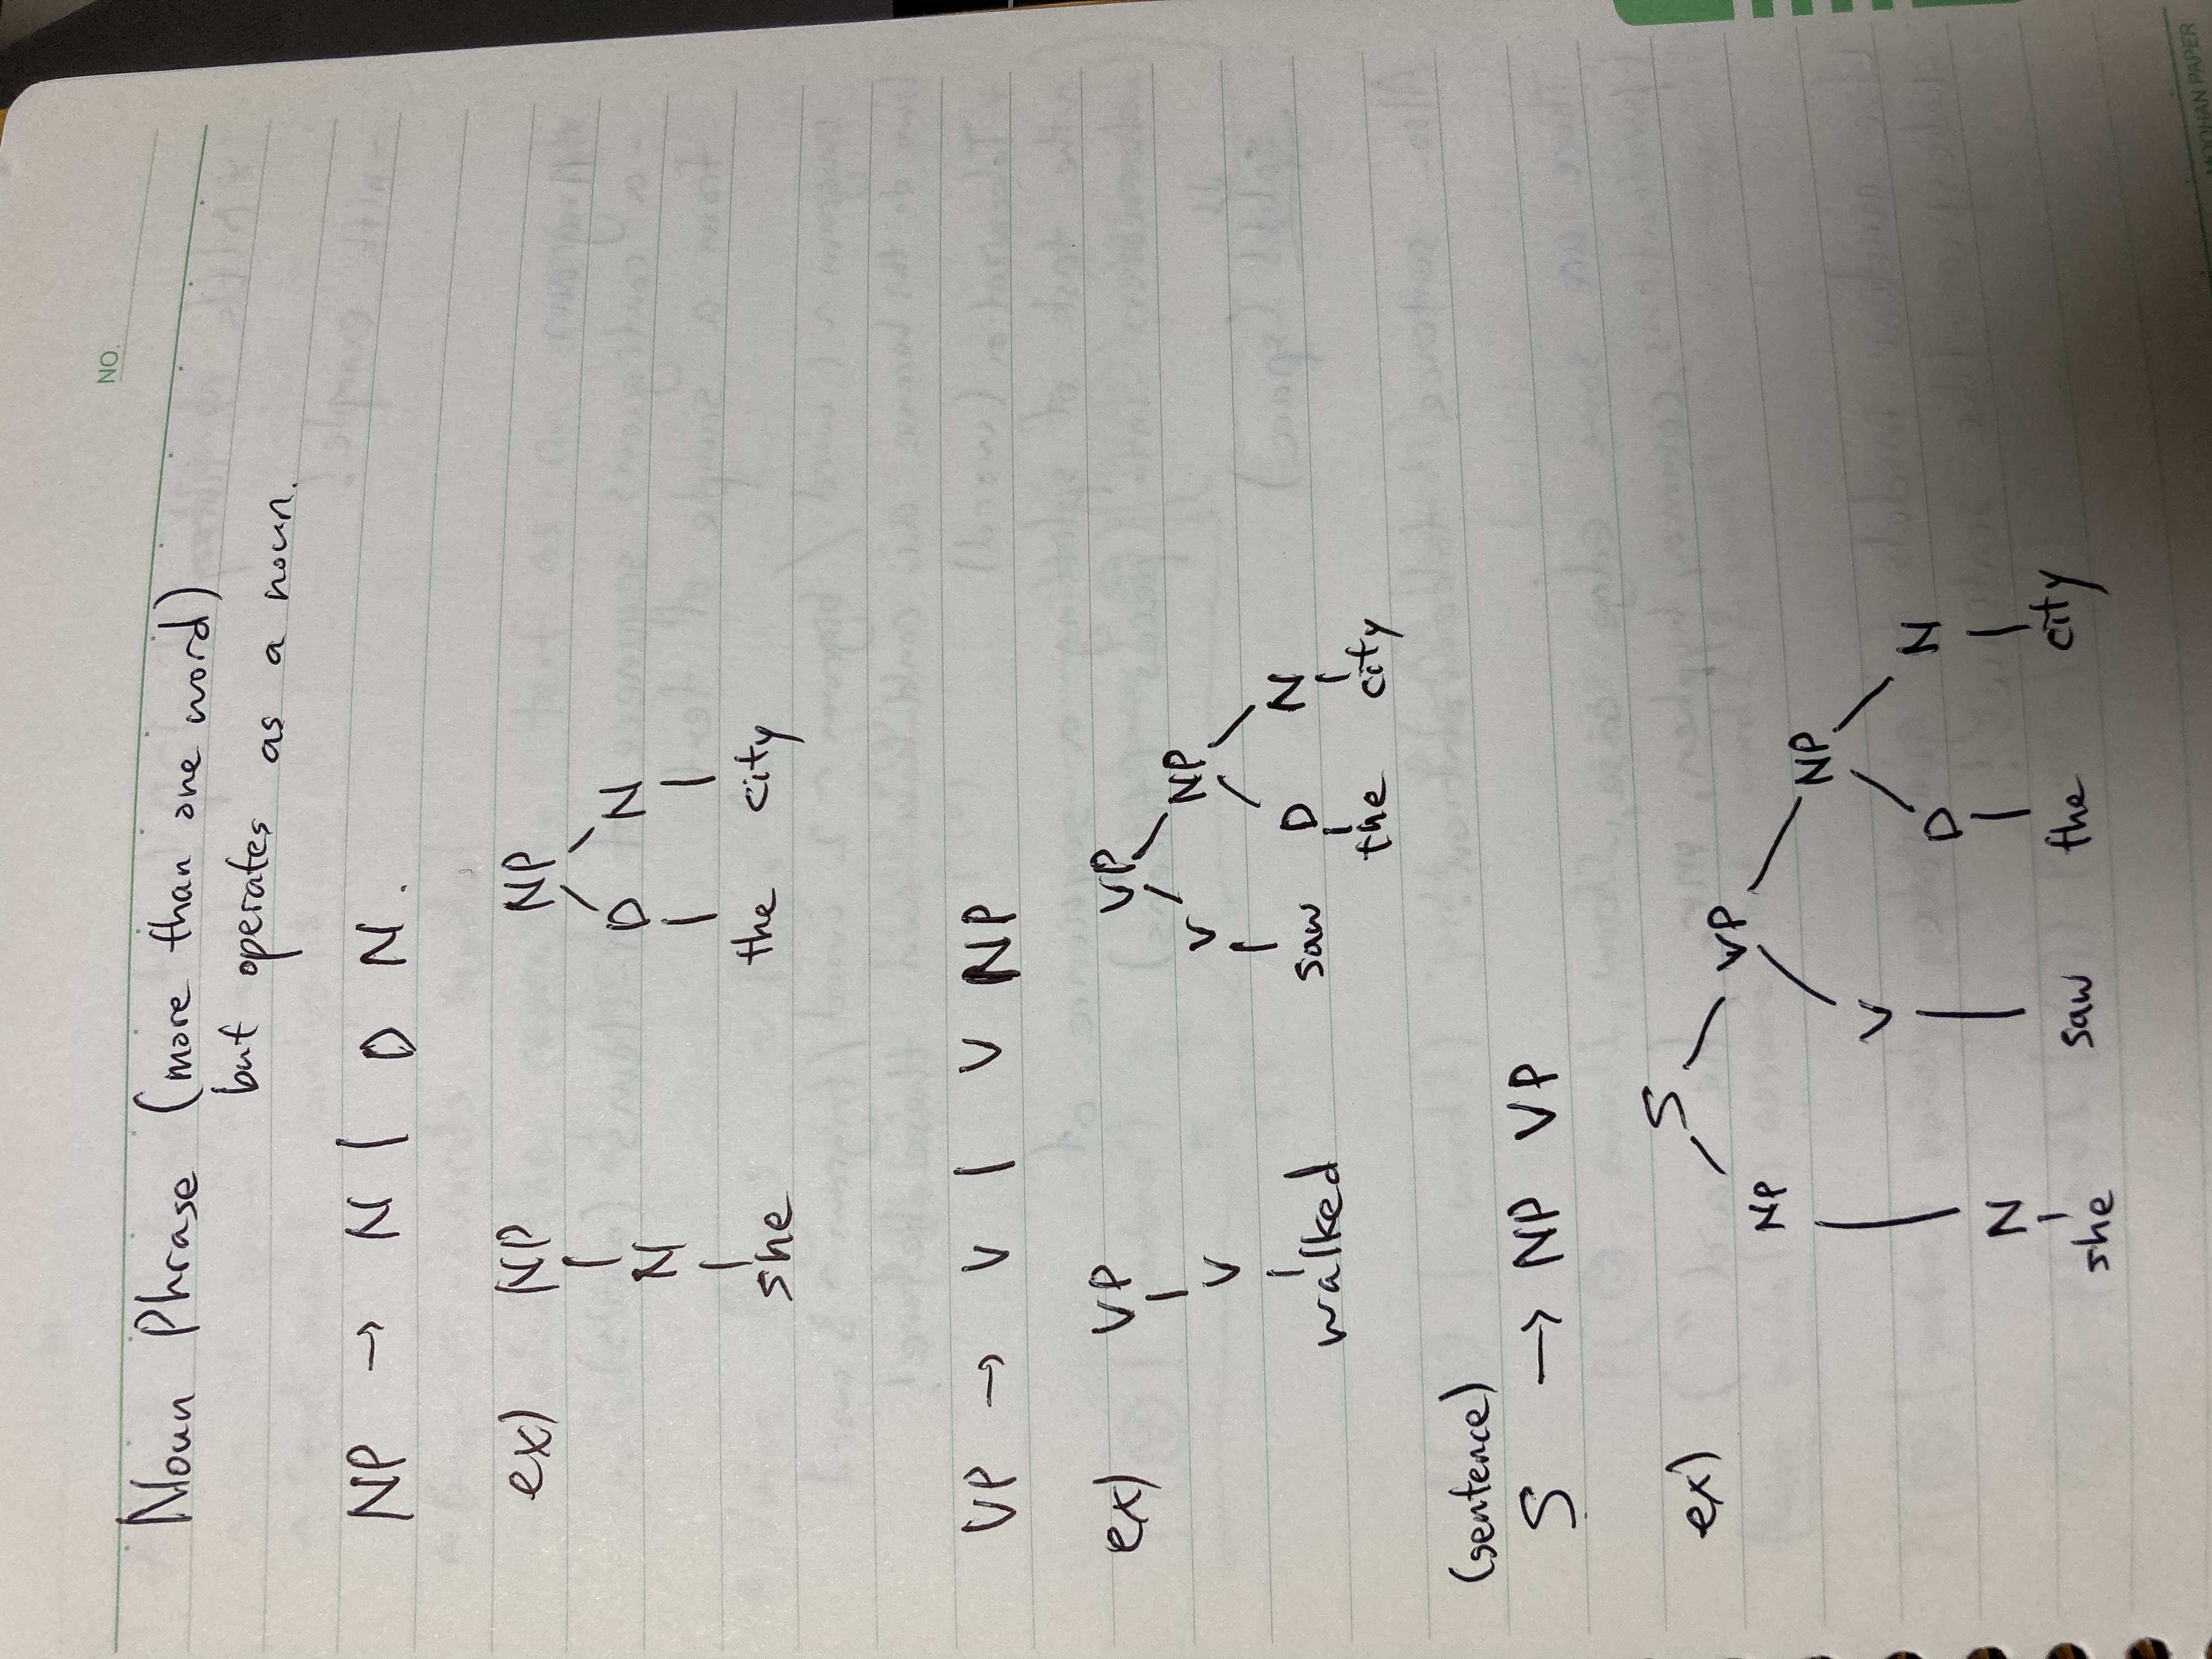 NO.
Noun Phrase (more than one word)
but operates as a noun.
NP → N | D N.
ex) NP NP
N D N
she the city
VP → V | V NP
ex) VP VP
V V NP
walked saw D N
the city
(sentence)
S → NP VP
ex) S
NP VP
NP
V
N D N
she saw the city
MOOHAN PAPER